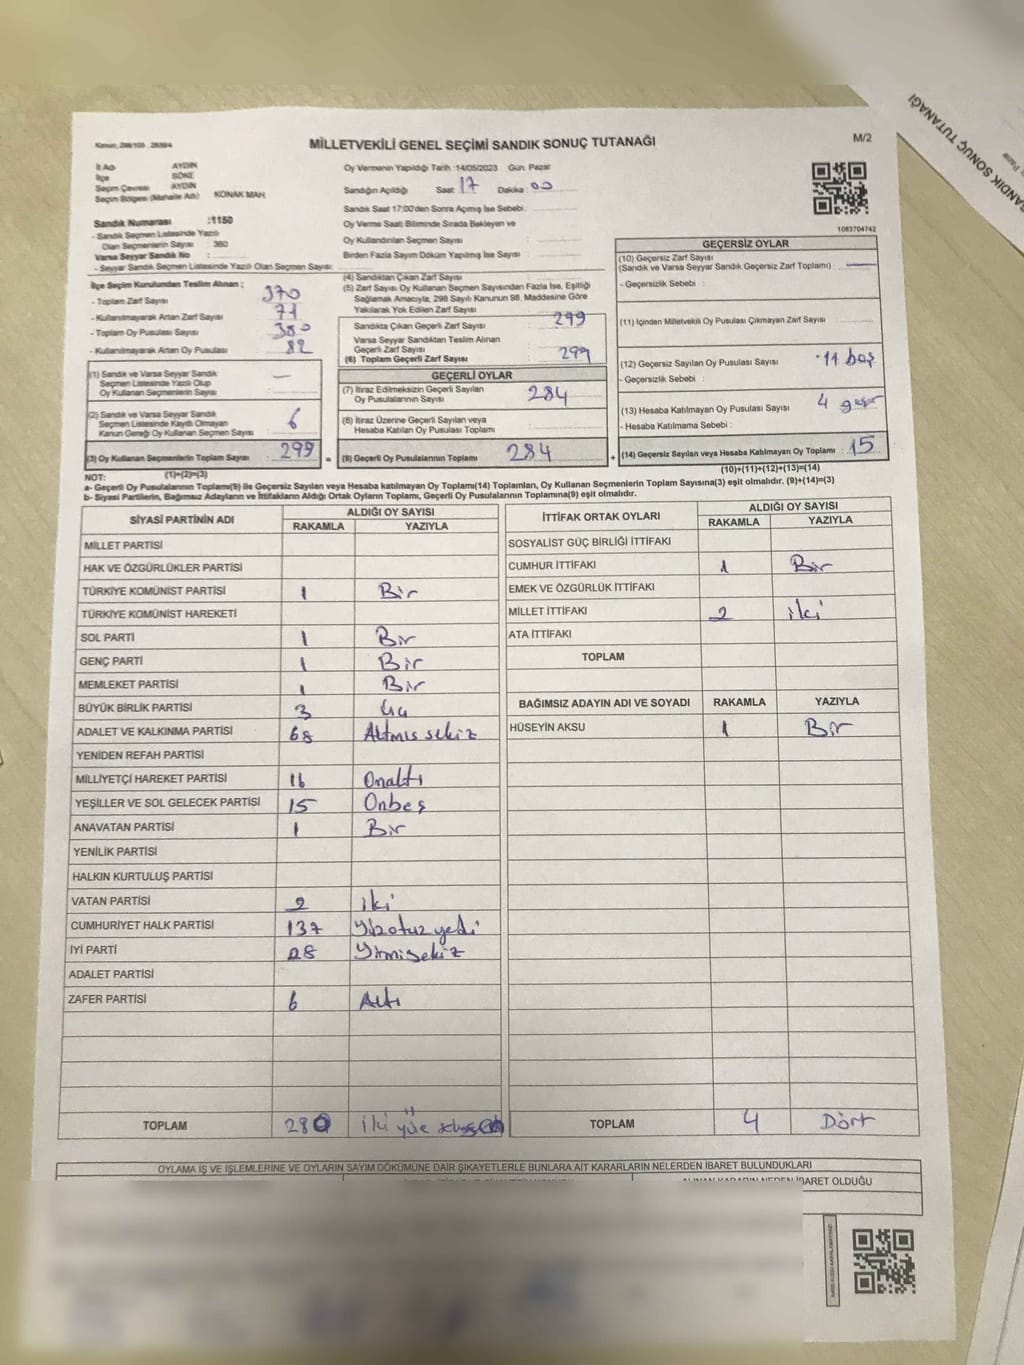 SANDIK SONUÇ TUTANAĞI
MİLLETVEKİLİ GENEL SEÇİMİ SANDIK SONUÇ TUTANAĞI
M/2
İl Adı AYDIN
İlçe SÖKE
Seçim Çevresi AYDIN
Seçim Bölgesi (Mahalle Adı) KONAK MAH
Sandık Numarası :1150
- Sandık Seçmen Listesinde Yazılı
Olan Seçmenlerin Sayısı : 360
Varsa Seyyar Sandık No :
- Seyyar Sandık Seçmen Listesinde Yazılı Olan Seçmen Sayısı:
Oy Vermenin Yapıldığı Tarih :14/05/2023 Gün: Pazar
Sandığın Açıldığı Saat: 17 Dakika: 00
Sandık Saat 17:00'den Sonra Açımış İse Sebebi:
Oy Verme Saati Bitiminde Sırada Bekleyen ve
Oy Kullandırılan Seçmen Sayısı
Birden Fazla Sayım Döküm Yapılmış İse Sayısı
1083704742
İlçe Seçim Kurulundan Teslim Alınan ;
- Toplam Zarf Sayısı 370
- Kullanılmayarak Artan Zarf Sayısı 71
- Toplam Oy Pusulası Sayısı 380
- Kullanılmayarak Artan Oy Pusulası 82
(1) Sandık ve Varsa Seyyar Sandık
Seçmen Listesinde Yazılı Olup
Oy Kullanan Seçmenlerin Sayısı : —
(2) Sandık ve Varsa Seyyar Sandık
Seçmen Listesinde Kayıtlı Olmayan
Kanun Gereği Oy Kullanan Seçmen Sayısı : 6
(3) Oy Kullanan Seçmenlerin Toplam Sayısı : 299 =
(1)+(2)=(3)
(4) Sandıktan Çıkan Zarf Sayısı
(5) Zarf Sayısı Oy Kullanan Seçmen Sayısından Fazla İse, Eşitliği
Sağlamak Amacıyla, 298 Sayılı Kanunun 98. Maddesine Göre
Yakılarak Yok Edilen Zarf Sayısı
Sandıkta Çıkan Geçerli Zarf Sayısı 299
Varsa Seyyar Sandıktan Teslim Alınan
Geçerli Zarf Sayısı
(6) Toplam Geçerli Zarf Sayısı 299
GEÇERLİ OYLAR
(7) İtiraz Edilmeksizin Geçerli Sayılan
Oy Pusulalarının Sayısı 284
(8) İtiraz Üzerine Geçerli Sayılan veya
Hesaba Katılan Oy Pusulası Toplamı
(9) Geçerli Oy Pusulalarının Toplamı 284 +
GEÇERSİZ OYLAR
(10) Geçersiz Zarf Sayısı
(Sandık ve Varsa Seyyar Sandık Geçersiz Zarf Toplamı) : —
- Geçersizlik Sebebi :
(11) İçinden Milletvekili Oy Pusulası Çıkmayan Zarf Sayısı
(12) Geçersiz Sayılan Oy Pusulası Sayısı 11 boş
- Geçersizlik Sebebi :
(13) Hesaba Katılmayan Oy Pusulası Sayısı 4
- Hesaba Katılmama Sebebi :
(14) Geçersiz Sayılan veya Hesaba Katılmayan Oy Toplamı : 15
(10)+(11)+(12)+(13)=(14)
NOT:
a- Geçerli Oy Pusulalarının Toplamı(9) ile Geçersiz Sayılan veya Hesaba katılmayan Oy Toplamı(14) Toplamları, Oy Kullanan Seçmenlerin Toplam Sayısına(3) eşit olmalıdır. (9)+(14)=(3)
b- Siyasi Partilerin, Bağımsız Adayların ve İttifakların Aldığı Ortak Oyların Toplamı, Geçerli Oy Pusulalarının Toplamına(9) eşit olmalıdır.
SİYASİ PARTİNİN ADI ALDIĞI OY SAYISI
RAKAMLA YAZIYLA
MİLLET PARTİSİ
HAK VE ÖZGÜRLÜKLER PARTİSİ
TÜRKİYE KOMÜNİST PARTİSİ 1 Bir
TÜRKİYE KOMÜNİST HAREKETİ
SOL PARTİ 1 Bir
GENÇ PARTİ 1 Bir
MEMLEKET PARTİSİ 1 Bir
BÜYÜK BİRLİK PARTİSİ 3 Üç
ADALET VE KALKINMA PARTİSİ 68 Altmış sekiz
YENİDEN REFAH PARTİSİ
MİLLİYETÇİ HAREKET PARTİSİ 16 Onaltı
YEŞİLLER VE SOL GELECEK PARTİSİ 15 Onbeş
ANAVATAN PARTİSİ 1 Bir
YENİLİK PARTİSİ
HALKIN KURTULUŞ PARTİSİ
VATAN PARTİSİ 2 iki
CUMHURİYET HALK PARTİSİ 137 Yüzotuzyedi
İYİ PARTİ 28 Yirmisekiz
ADALET PARTİSİ
ZAFER PARTİSİ 6 Altı
TOPLAM 280 iki yüz
İTTİFAK ORTAK OYLARI ALDIĞI OY SAYISI
RAKAMLA YAZIYLA
SOSYALİST GÜÇ BİRLİĞİ İTTİFAKI
CUMHUR İTTİFAKI 1 Bir
EMEK VE ÖZGÜRLÜK İTTİFAKI
MİLLET İTTİFAKI 2 iki
ATA İTTİFAKI
TOPLAM
BAĞIMSIZ ADAYIN ADI VE SOYADI RAKAMLA YAZIYLA
HÜSEYİN AKSU 1 Bir
TOPLAM 4 Dört
OYLAMA İŞ VE İŞLEMLERİNE VE OYLARIN SAYIM DÖKÜMÜNE DAİR ŞİKAYETLERLE BUNLARA AİT KARARLARIN NELERDEN İBARET BULUNDUKLARI
ALINAN KARARIN NEDEN İBARET OLDUĞU